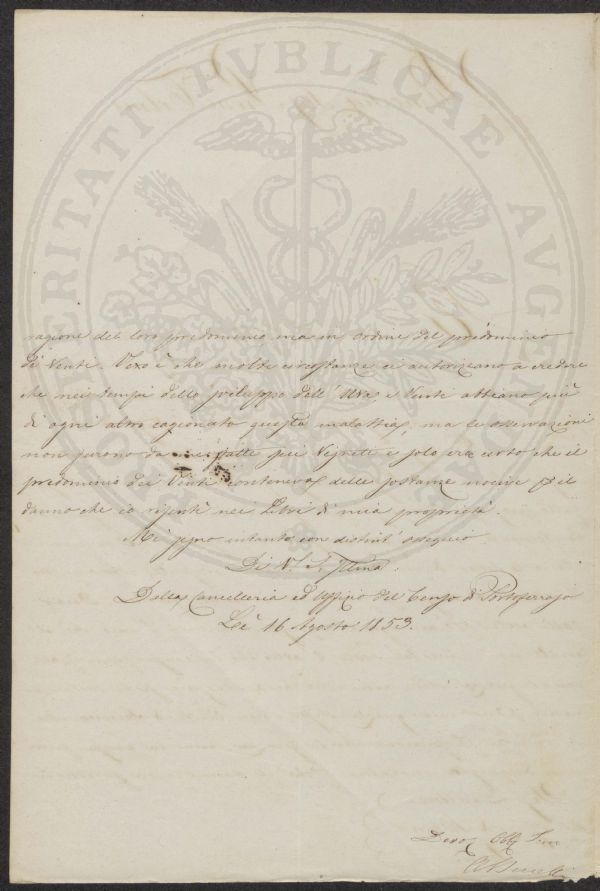 POSTERITATI PVBLICAE AVGENDAE
ragione del loro predominio ma in ordine del predominio
di Venti. Vero è che molte circostanze ci autorizzano a credere
che nei tempi dello sviluppo dell' Uva, i Venti abbiano più
di ogni altro cagionato questa malattia, ma le osservazioni
non furono da me fatte sui Vigneti e solo era certo che il
predominio dei Venti conteneva delle sostanze nocive p il
danno che io risentì nei Libri di mia proprietà.
Mi segno intanto con distint' ossequio
Di V. S. Illma.
Dalla Cancelleria ed Uffizio del Censo di Portoferrajo
Lì 16 Agosto 1853.
Devo Obb Ser